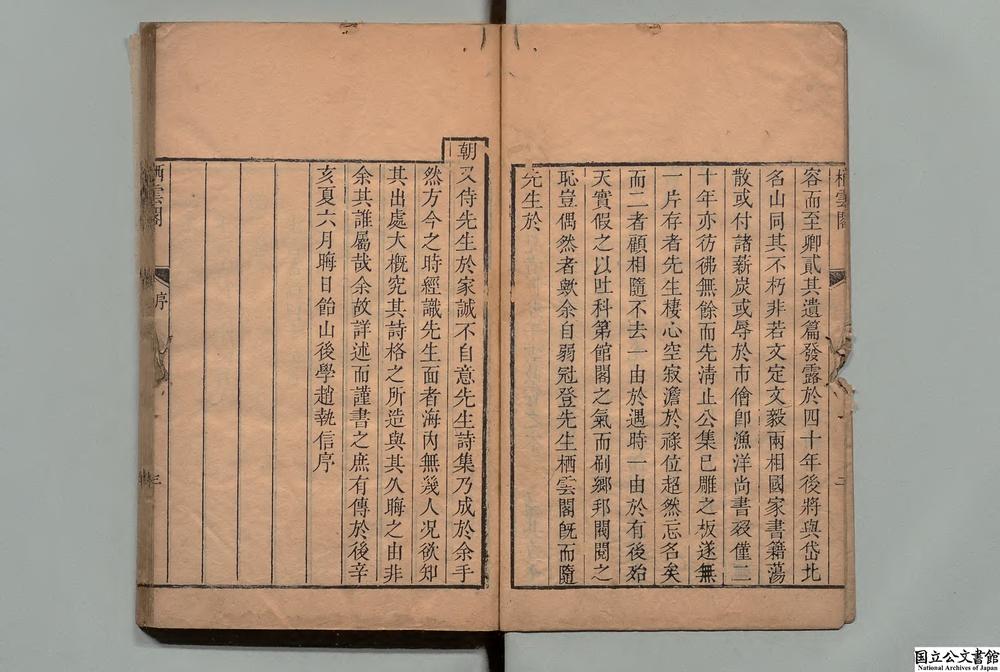 栖雲閣
容而至卿貳其遺篇發露於四十年後將與岱北
名山同其不朽非若文定文毅兩相國家書籍蕩
散或付諸薪炭或辱於市儈卽漁洋尚書歿僅二
十年亦彷彿無餘而先清止公集已雕之板遂無
一片存者先生棲心空寂澹於祿位超然忘名矣
而二者顧相隨不去一由於遇時一由於有後殆
天實假之以吐科第館閣之氣而刷鄉邦閥閱之
恥豈偶然者歟余自弱冠登先生栖雲閣旣而隨
先生於
朝又侍先生於家誠不自意先生詩集乃成於余手
然方今之時經識先生面者海內無幾人况欲知
其出處大槪究其詩格之所造與其久晦之由非
余其誰屬哉余故詳述而謹書之庶有傳於後辛
亥夏六月晦日飴山後學趙執信序
栖雲閣 序 三
国立公文書館
National Archives of Japan